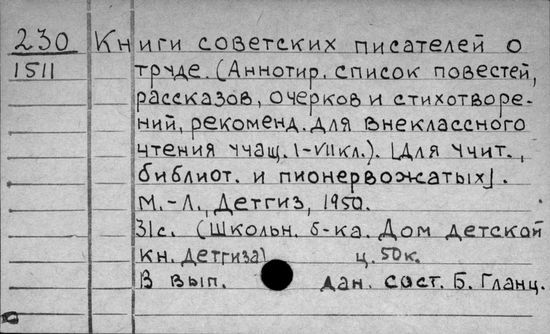 230 Книги советских писателей о
1511 труде. (Аннотир. список повестей,
рассказов, очерков и стихотворе-
ний, рекоменд. для внеклассного
чтения учащ. I-VII кл.). [Для учит.,
библиот. и пионервожатых].
М.-Л., Детгиз, 1950.
31с. (Школьн. б-ка. Дом детской
кн. Детгиза) ц. 50к.
В вып. дан. сост. Б. Гланц.